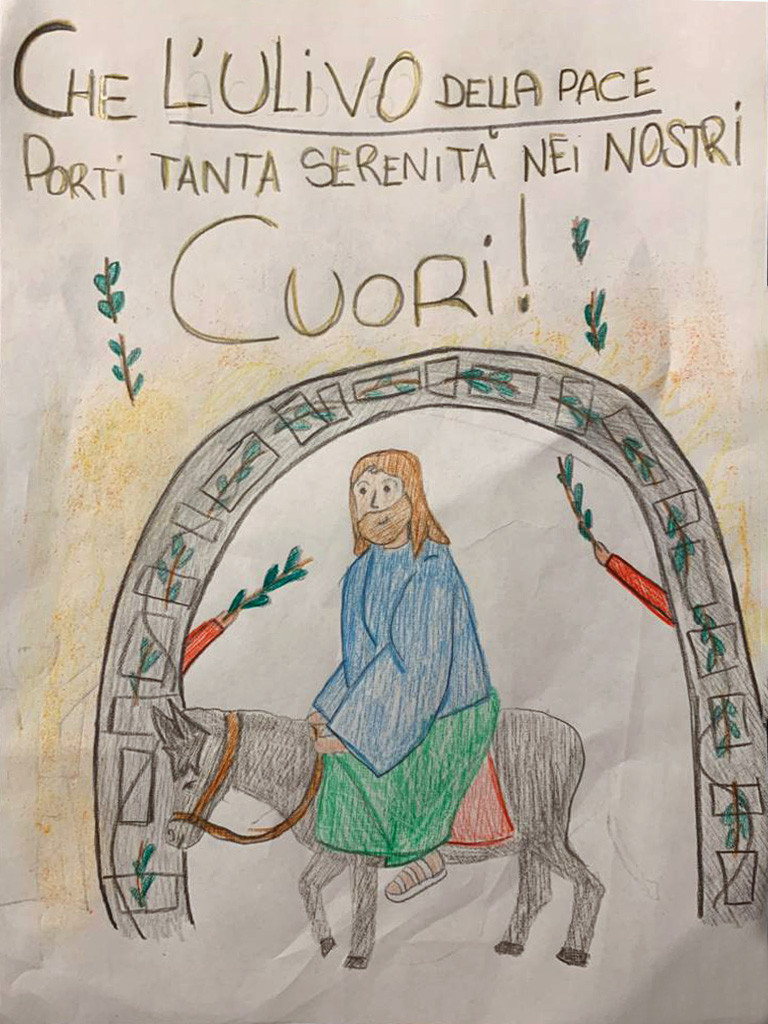 CHE L'ULIVO DELLA PACE
PORTI TANTA SERENITÀ NEI NOSTRI
CUORI!